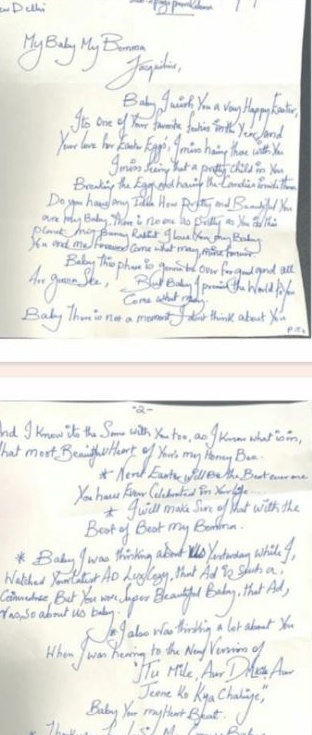 New Delhi
My Baby My Bomma
Jacqueline,
Baby I wish You a very Happy Easter,
Its one of Your favorite festive in the Year, and
Your love her Easter Eggs, I miss having those with You
I miss seeing that a pretty child in You
Breaking the Egg and having the Candies inside them
Do you have any Idea How Pretty and Beautiful You
are my Baby, There is no one as Pretty as You on this
planet my Bunny Rabbit I love You my Baby
You and me Forever Come what may
Baby this phase is gonna be over for good and all
Are gonna See, But Baby I promise the World to You
Come what may.
Baby There is not a moment I dont think about You
P.T.O
-2-
And I Know its the Same with You too, as I Know what is in,
that most Beautiful Heart of Yours my Honey Bee.
* Next Easter Will Be the Best ever one
You have Ever Celebrated in Your life
* I will make Sure of that with the
Best of Best my Bomma.
* Baby I was thinking about Us Yesterday while I,
Watched Your Latest AD Lux Cozy, that Ad is Such a,
But You were Super Beautiful Baby, that Ad,
Was, So about us baby.
* I also was thinking a lot about You
When I was hearing to the New Version of
"Tu Mile, Aur Dil Khile, Aur
Jeene Ko Kya Chahiye,"
Baby You my Heart Beat.